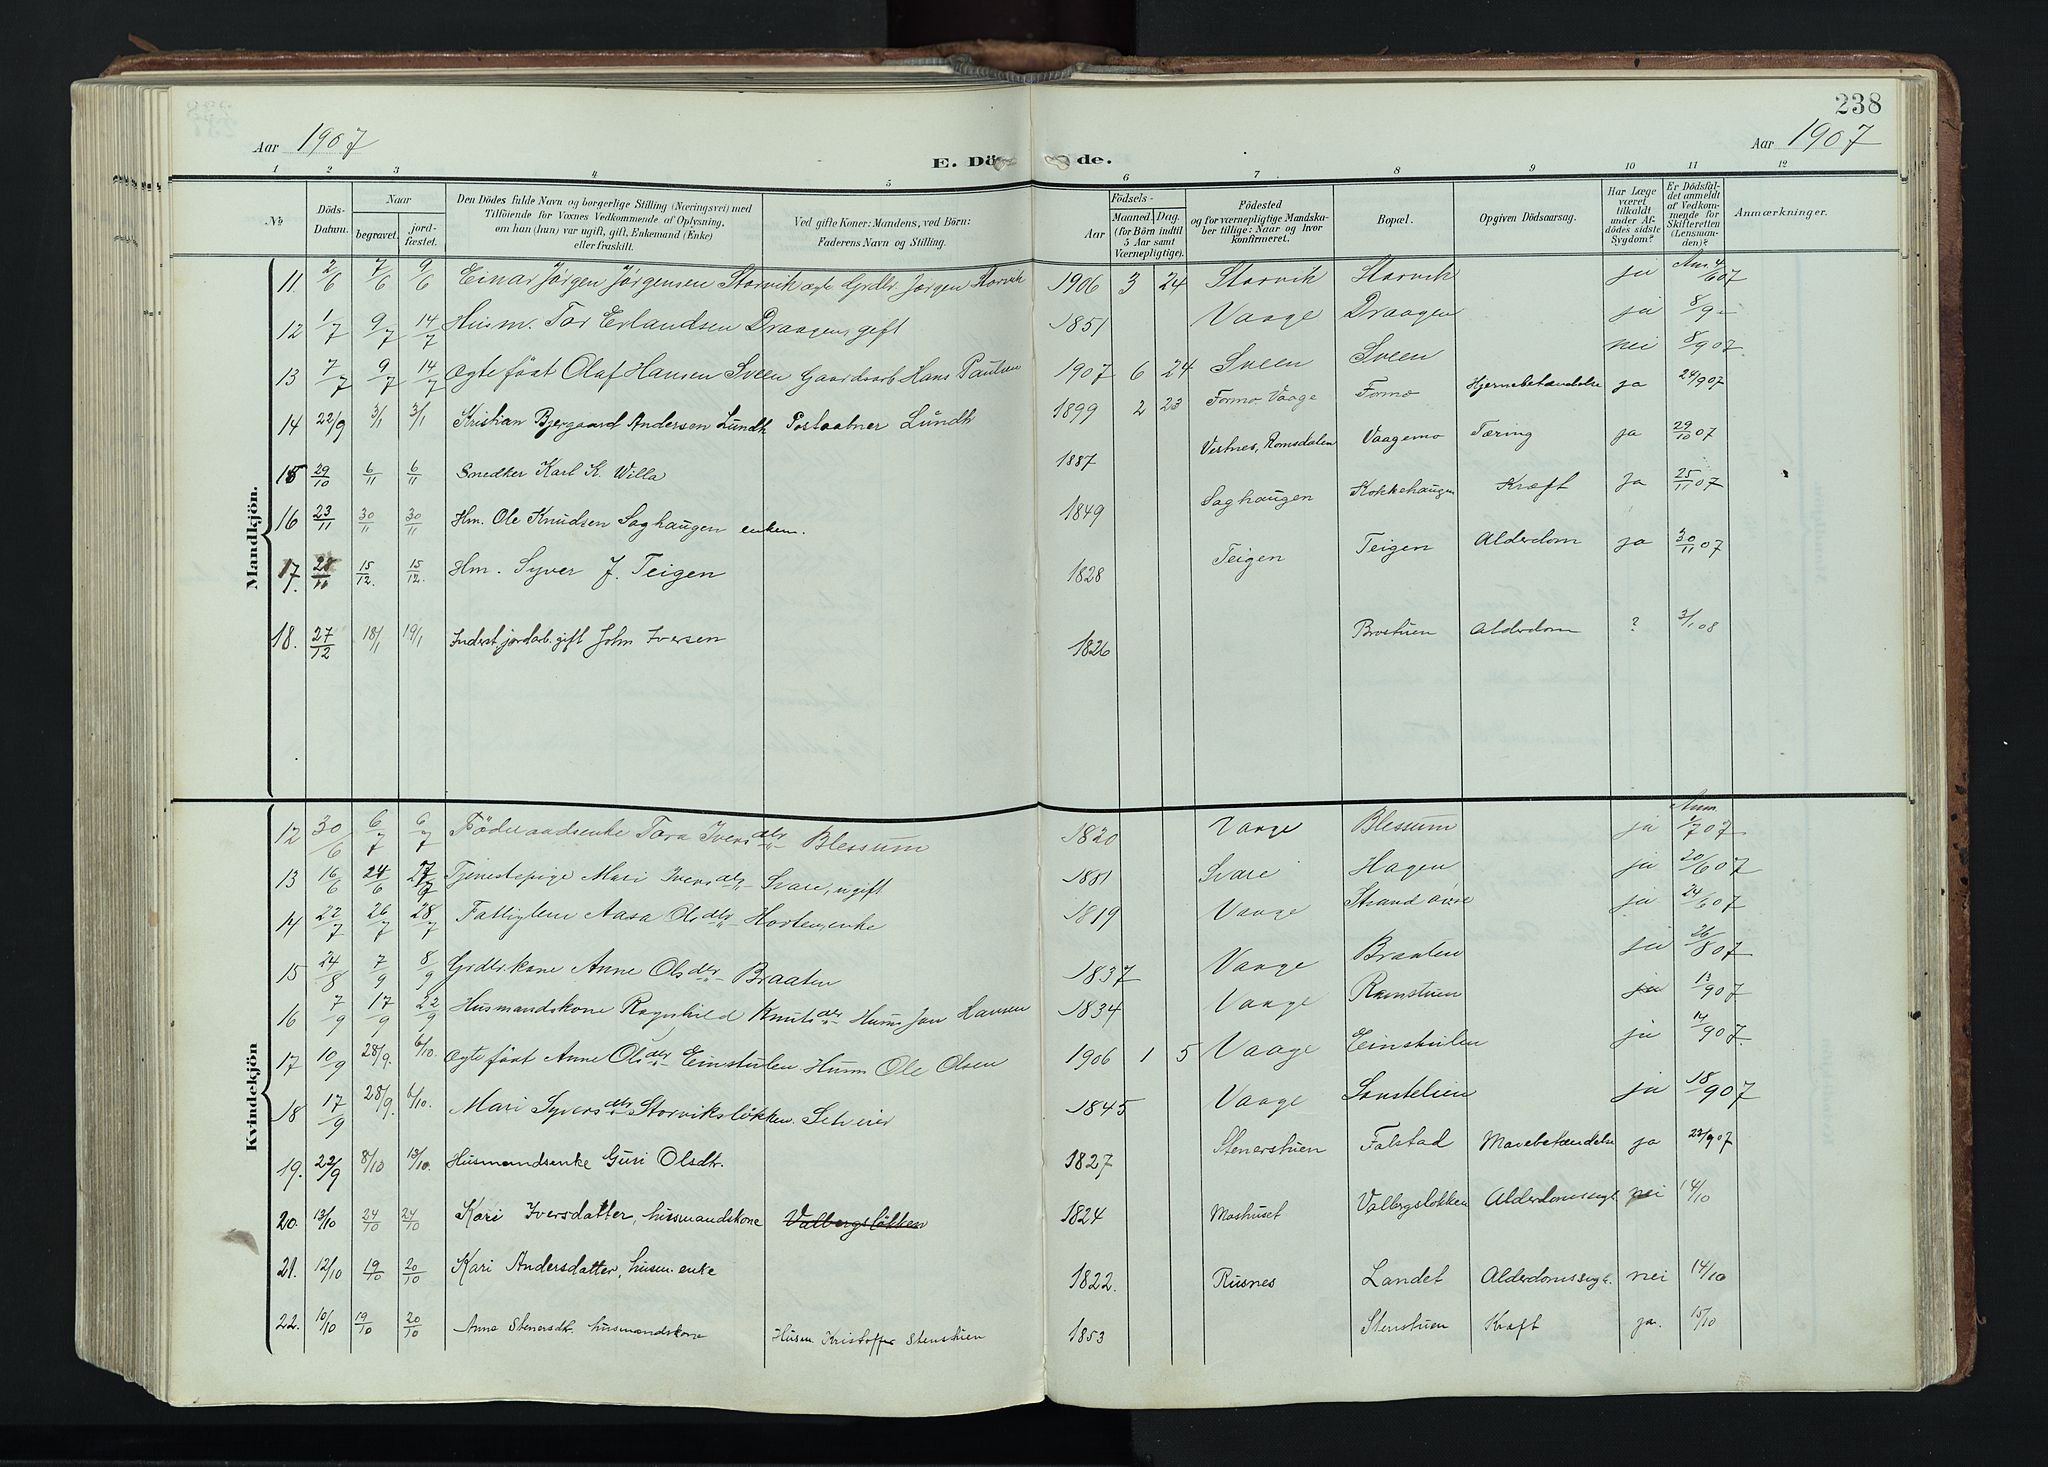 238
Aar 1907
E. Dö de.
Aar 1907
1 2 3 4 5 6 7 8 9 10 11 12
№
Döds-Datum.
Naar begravet. jordfæstet.
Den Dödes fulde Navn og borgerlige Stilling (Næringsvei) med Tilföiende for Voxnes Vedkommende af Oplysning, om han (hun) var ugift, gift, Enkemand (Enke) eller fraskilt.
Ved gifte Koner: Mandens, ved Börn: Faderens Navn og Stilling.
Födsels- Aar Maaned. Dag. (for Börn indtil 5 Aar samt Værnepligtige).
Födested og for værnepligtige Mandskaber tillige: Naar og hvor konfirmeret.
Bopæl.
Opgiven Dödsaarsag.
Har Læge været tilkaldt under Afdödes sidste Sygdom?
Er Dödsfaldet anmeldt af Vedkommende for Skifteretten (Lensmanden)?
Anmærkninger.
Mandkjön.
11 2/6 7/6 9/6 Einar Jørgen Jørgensen Storvik ægte Grdbr. Jørgen Storvik 1906 3 24 Storvik Storvik ja Anm 4/6 07
12 1/7 9/7 14/7 Husm. Tor Erlandsen Draagen, gift 1851 Vaage Draagen ja 8/9
13 7/7 9/7 14/7 ægte født Olaf Hansen Sveen Gaardsarb Hans Paulsen 1907 6 24 Sveen Sveen nei 8/9 07
14 22/9 3/1 3/1 Kristian Bjergaard Andersen Lundh Postaabner Lundh 1899 2 23 Formo Vaage Formo Hjernebetændelse ja 24/9 07
15 29/10 6/11 6/11 Snedker Karl K. Willa 1887 Vestnes, Romsdalen Vaagemo Tæring ja 29/10 07
16 23/11 30/11 30/11 Hm. Ole Knudsen Saghaugen enkem. 1849 Saghaugen Kokkehaugen Kræft Ja 25/11 07
17. 28/11 15/12 15/12. Hm. Syver J. Teigen 1828 Teigen Teigen Alderdom ja 30/11 07
18. 27/12 18/1 19/1 Inderst, jordarb. gift John Iversen 1826 Brostuen Alderdom ? 3/1 08
Kvindekjön
12 30/6 6/7 6/7 Føderaadsenke Tora Iversdtr Blessum 1820 Vaage Blessum ja Anm 2/7 07
13 16/6 24/6 27/7 Tjenestepige Mari Iversdtr Svare, ugift 1881 Svare Hagen ja 20/6 07
14 22/7 26/7 28/7 Fattiglem Aasa Olsdtr Horten, enke 1819 Vaage ja 24/6 07
15 24/8 7/9 8/9 Grdbrkone Anne Olsdtr Braaten 1837 Vaage Braaten ja 26/8 07
16 7/9 17/9 22/9 Husmandskone Ragnhild Knutsdtr Husm Jan Hansen 1834 Vaage Ramstuen ja 13/9 07
17 10/9 28/9. 6/10. ægte født Anne Olsdtr Einstulen Husm Ole Olsen 1906 1 5 Vaage Einstulen ja 14/9 07
18 17/9 28/9. 6/10. Mari Syversdtr Storviksløkken. Selveier 1845 Vaage ja 18/9 07
19. 22/9 8/10 13/10. Husmandsenke Guri Olsdtr. 1827 Stenerstuen Falstad Mavebetændelse ja 23/9 07
20. 13/10 24/10 24/10 Kari Iversdatter, husmandskone Valbergsløkken 1824 Moshuset Valbergsløkken Alderdomssvgt. nei 14/10
21. 12/10 19/10 20/10 Kari Andersdatter, husm. enke 1822. Rusnes Landet Alderdomssvgt. nei 14/10
22. 10/10 19/10 20/10 Anne Stenersdtr. husmandskone Husm Kristoffer Stenstuen 1853 Stenstuen Kræft ja. 15/10